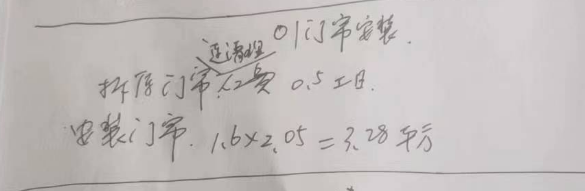 01门帘安装.
运清理
拆除门帘人工费 0.5工日.
安装门帘. 1.6×2.05=3.28平方